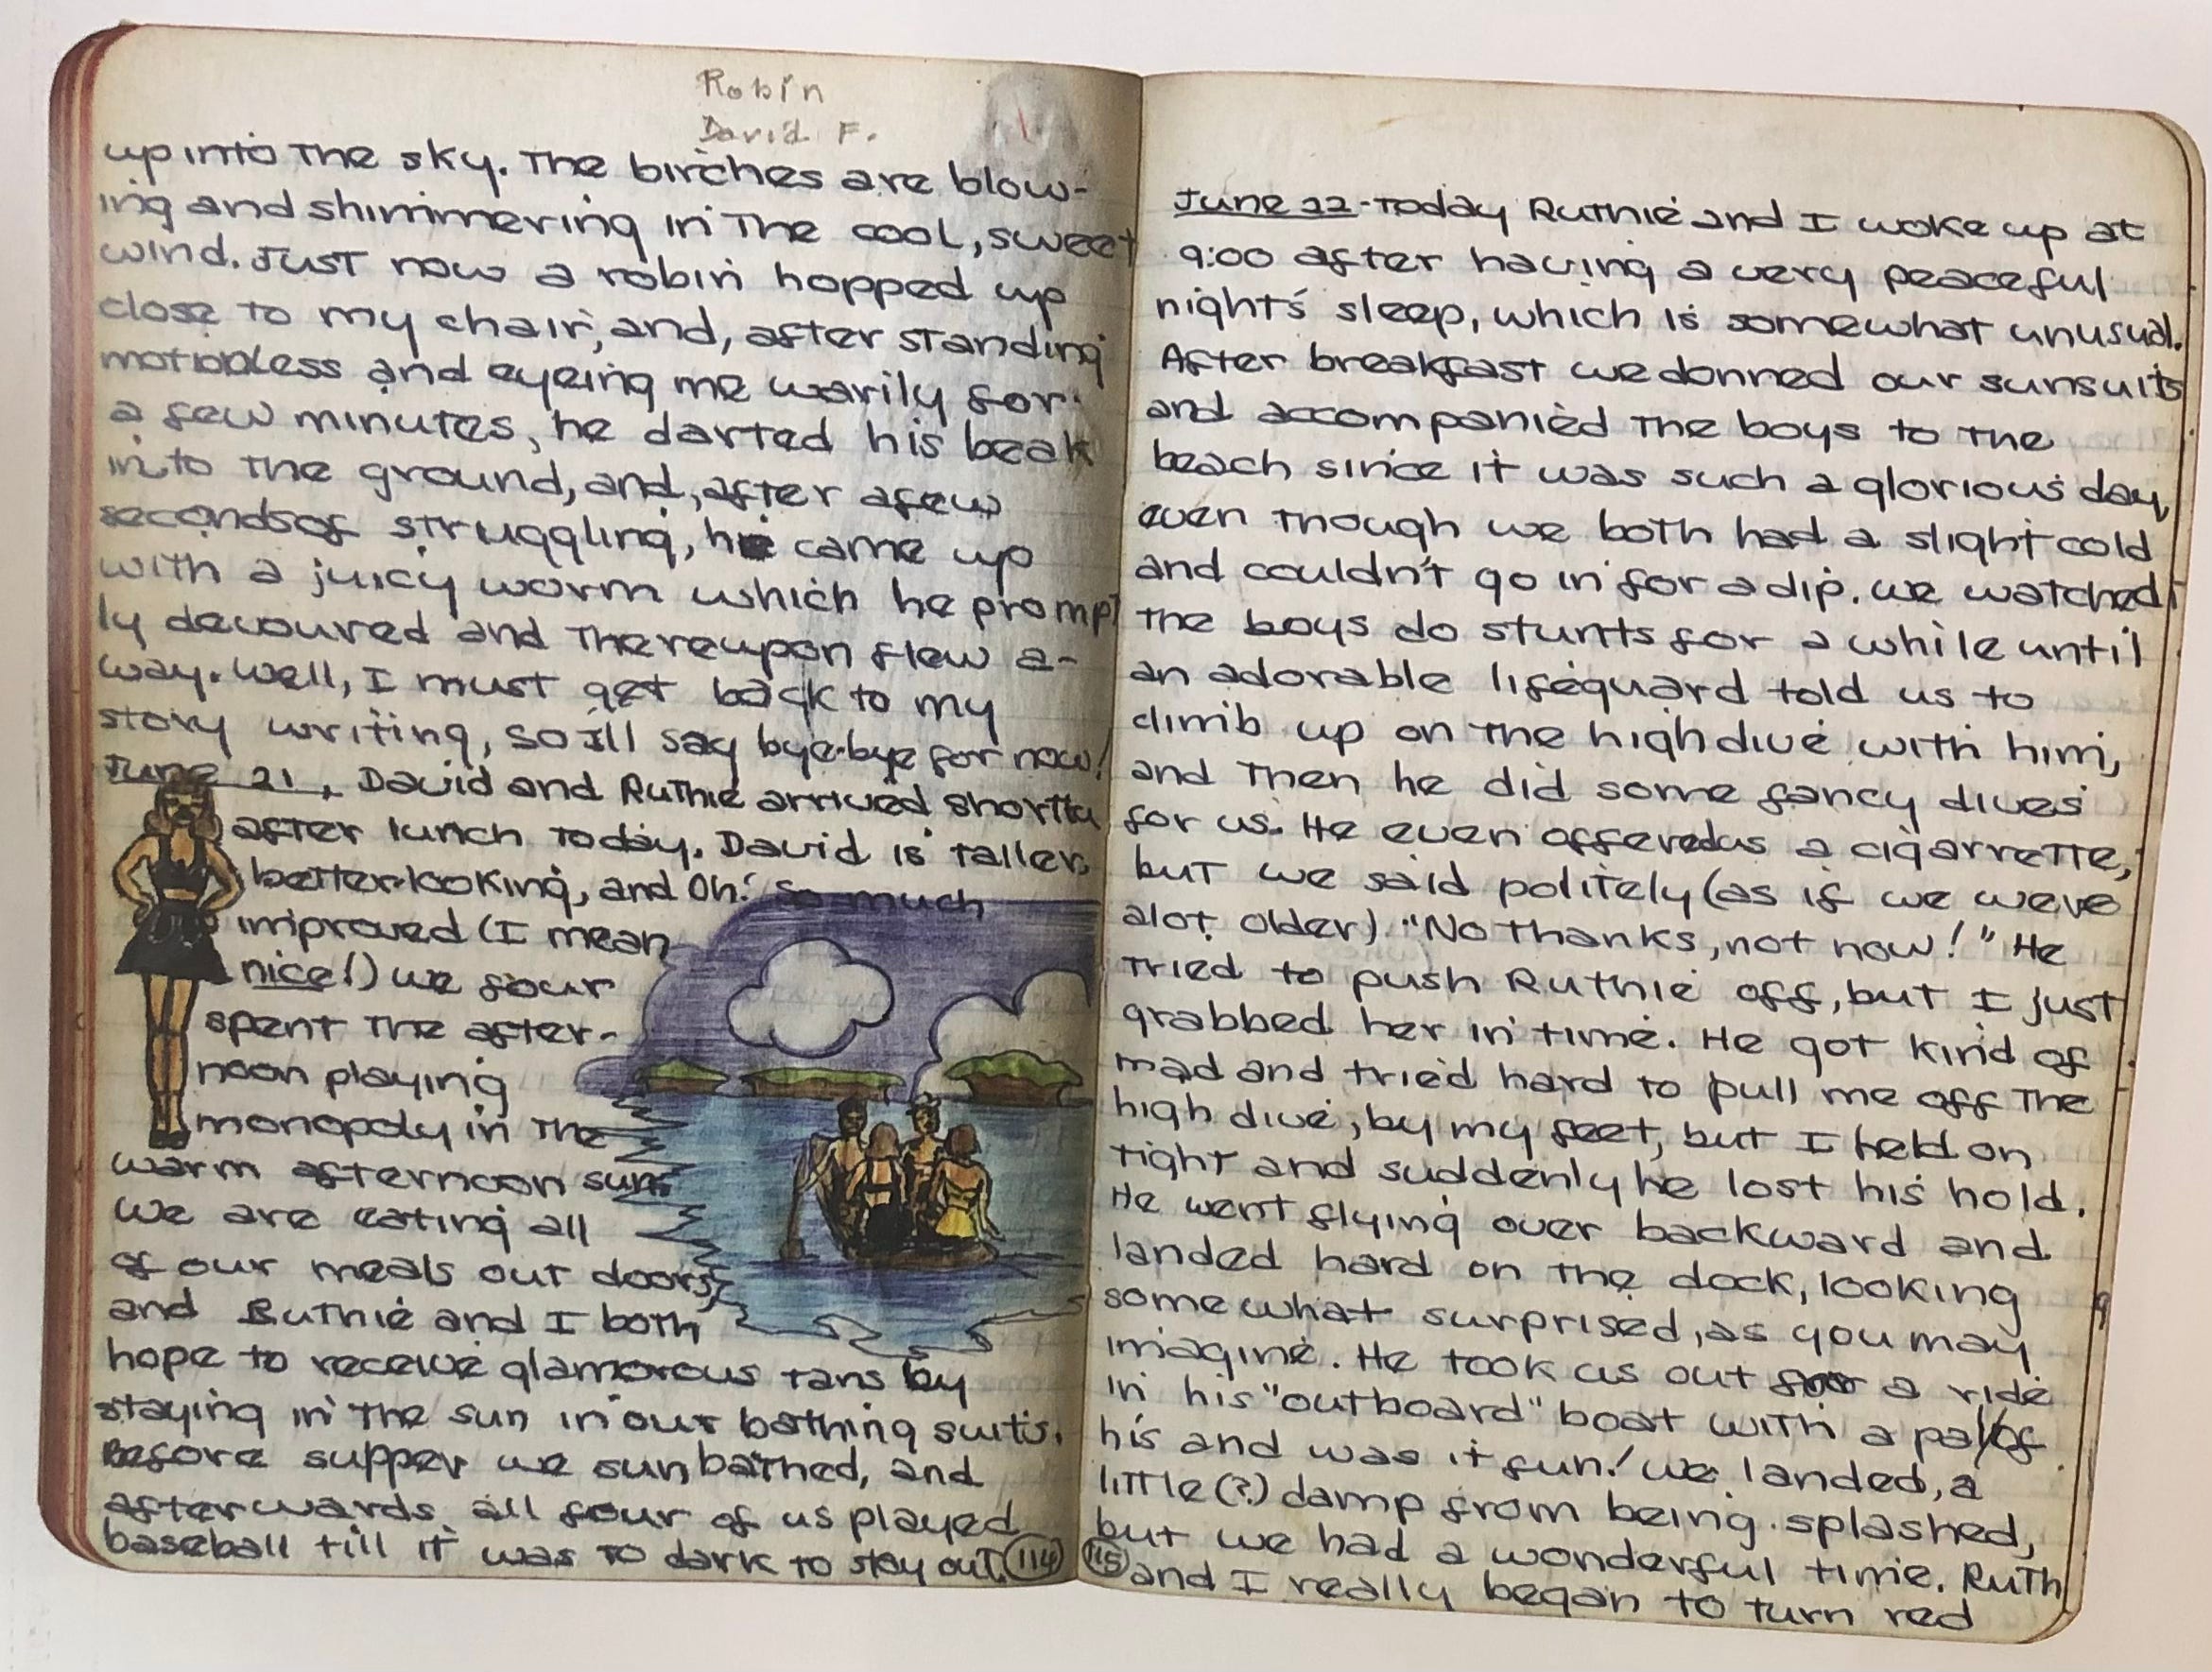 Robin
David F.
up into the sky. The birches are blow-
ing and shimmering in the cool, sweet
wind. Just now a robin hopped up
close to my chair, and, after standing
motionless and eyeing me warily for
a few minutes, he darted his beak
into the ground, and, after a few
seconds of struggling, he came up
with a juicy worm which he prompt
ly devoured and thereupon flew a-
way. Well, I must get back to my
story writing, so I'll say bye-bye for now!
June 21, David and Ruthie arrived shortly
after lunch today. David is taller,
better-looking, and Oh! So much
improved (I mean
nice!) we four
spent the after-
noon playing
monopoly in the
warm afternoon sun.
We are eating all
of our meals out doors,
and Ruthie and I both
hope to receive glamorous tans by
staying in the sun in our bathing suits.
Before supper we sunbathed, and
afterwards all four of us played
baseball till it was to dark to stay out.
114
June 22-Today Ruthie and I woke up at
9:00 after having a very peaceful
night's sleep, which is somewhat unusual.
After breakfast we donned our sunsuits
and accompanied the boys to the
beach since it was such a glorious day,
even though we both had a slight cold
and couldn't go in for a dip. We watched
the boys do stunts for a while until
an adorable lifeguard told us to
climb up on the high dive with him,
and then he did some fancy dives
for us. He even offered us a cigarrette,
but we said politely (as if we were
alot older) "No thanks, not now!" He
tried to push Ruthie off, but I just
grabbed her in time. He got kind of
mad and tried hard to pull me off the
high dive, by my feet, but I held on
tight and suddenly he lost his hold.
He went flying over backward and
landed hard on the dock, looking
somewhat surprised, as you may
imagine. He took us out for a ride
in his "outboard" boat with a pal of
his and was it fun! We landed, a
little (?) damp from being splashed,
but we had a wonderful time. Ruth
115
and I really began to turn red